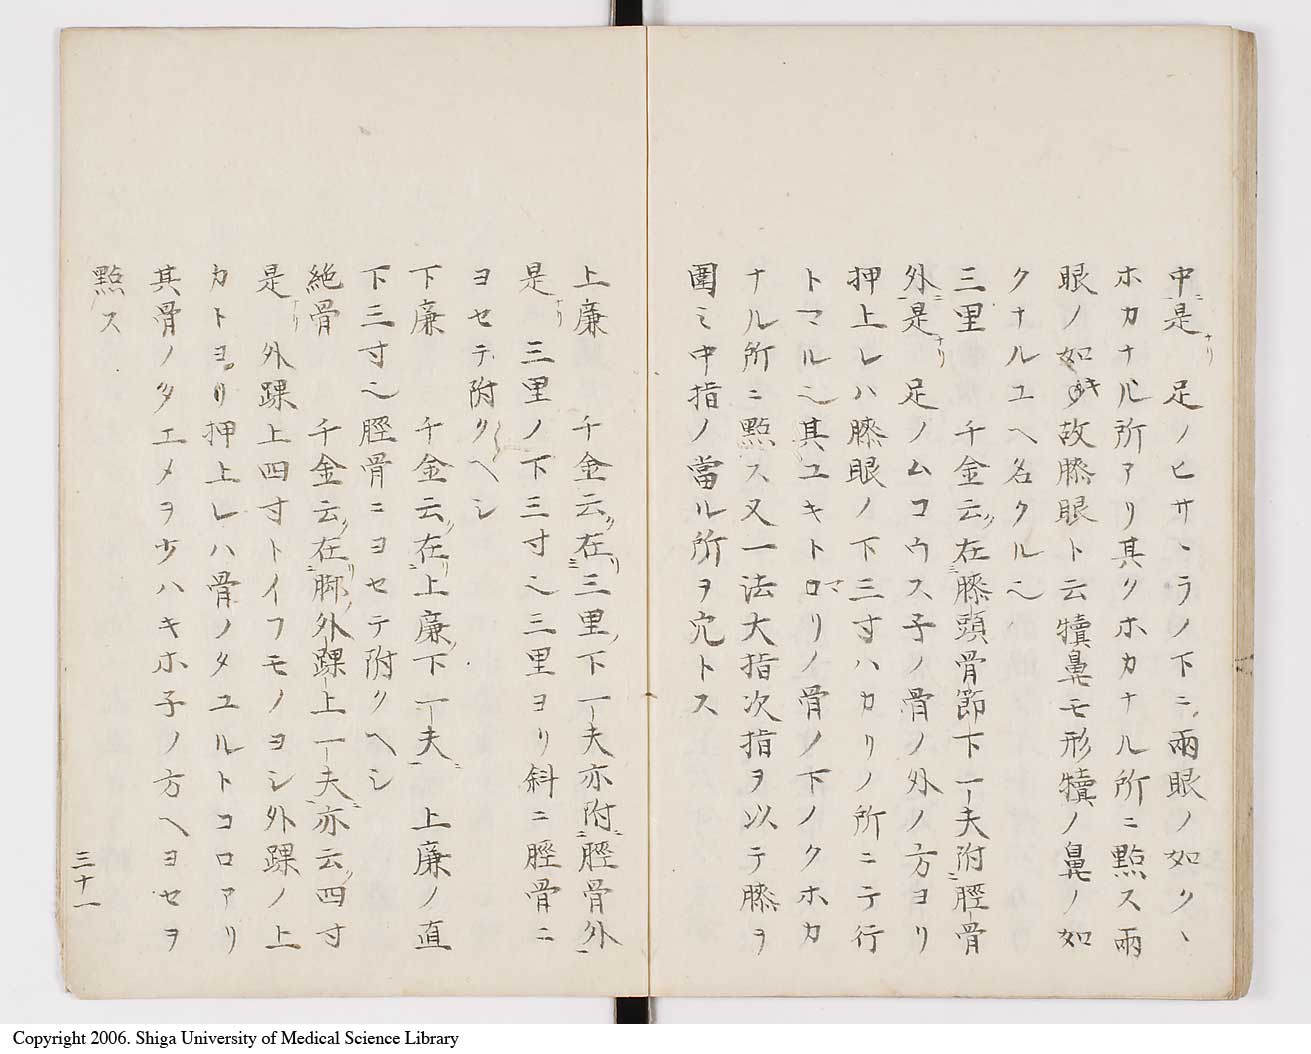 中ニ是ナリ 足ノヒサヽラノ下ニ兩眼ノ如クヽ
ホカナル所アリ其クホカナル所ニ點ス兩
眼ノ如キ故膝眼ト云犢鼻モ形犢ノ鼻ノ如
クナルユヘ名クル也
三里 千金云在膝頭骨節下一夫附脛骨
外ニ是ナリ 足ノムコウス子ノ骨ノ外ノ方ヨリ
押上レハ膝眼ノ下三寸ハカリノ所ニテ行
トマル也其ユキトマリノ骨ノ下ノクホカ
ナル所ニ點ス又一法大指次指ヲ以テ膝ヲ
圍ミ中指ノ當ル所ヲ穴トス
上廉 千金云在三里下一夫亦附脛骨外
是ナリ 三里ノ下三寸也三里ヨリ斜ニ脛骨ニ
ヨセテ附クヘシ
下廉 千金云在上廉下一夫 上廉ノ直
下三寸也脛骨ニヨセテ附クヘシ
絶骨 千金云在脚外踝上一夫亦云四寸
是ナリ 外踝上四寸トイフモノヨシ外踝ノ上
カトヨリ押上レハ骨ノタユルトコロアリ
其骨ノタエメヲ少ハキホ子ノ方ヘヨセヲ
點ス
三十一
Copyright 2006. Shiga University of Medical Science Library